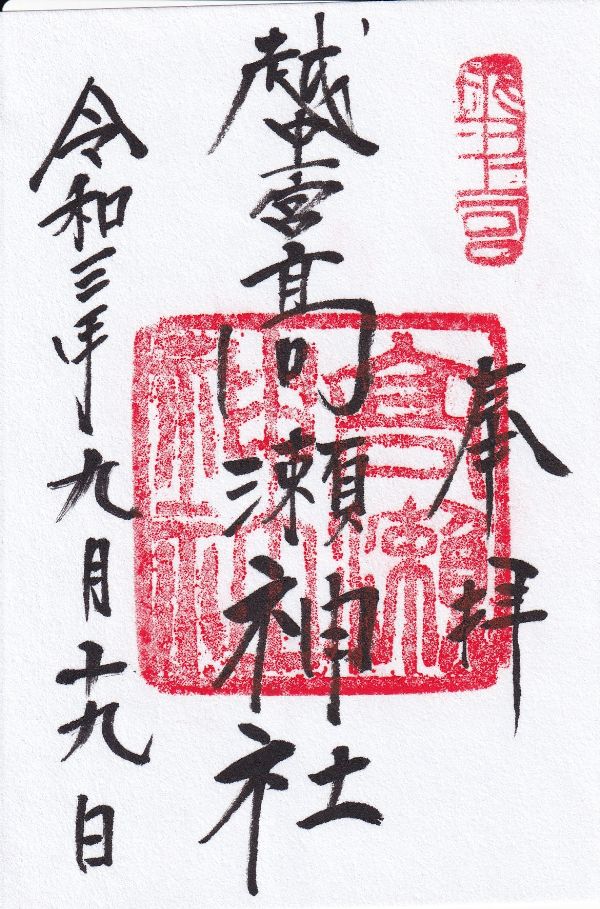 奉拝
越中一宮髙瀬神社
高瀬神社
令和三年九月十九日